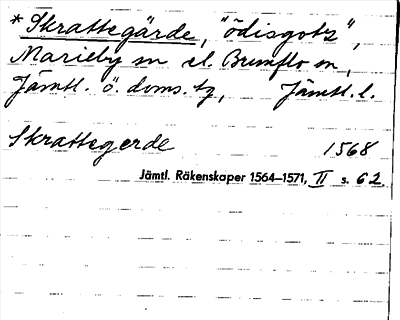 *Skrattegärde, "ödisgotz",
Marieby sn el. Brunflo sn,
Jämtl. ö. doms. tg, Jämtl. l.
Skrattegerde 1568
Jämtl. Räkenskaper 1564–1571, II s. 62.